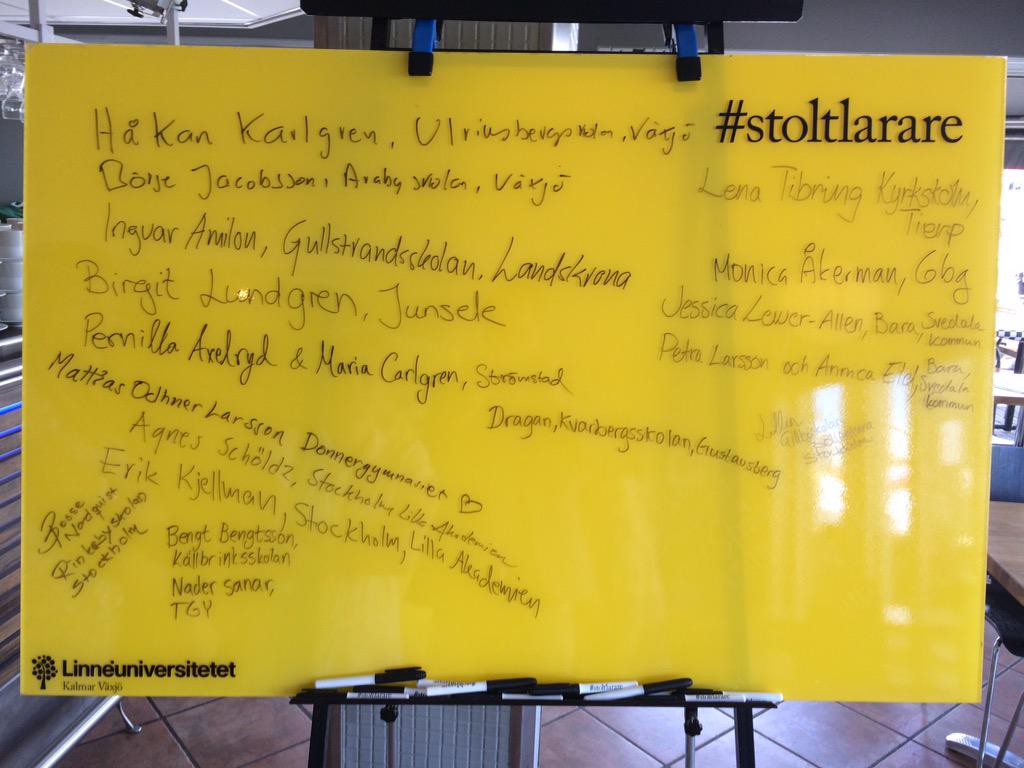 #stoltlarare
Håkan Karlgren, Ulriksbergsskolan, Växjö
Börje Jacobsson, Arabyskolan, Växjö
Ingvar Amilon, Gullstrandsskolan, Landskrona
Birgit Lundgren, Junsele
Pernilla Axelryd & Maria Carlgren, Strömstad
Mattias Odhner Larsson Donnergymnasiet
Agnes Schöldz, Stockholm Lilla Akademien
Erik Kjellman, Stockholm, Lilla Akademien
Bosse
Nordquist
Rinkebyskolan
Stockholm
Bengt Bengtsson,
Källbrinksskolan
Nader sanar,
TGY
Lena Tibring Kyrkskolan,
Tierp
Monica Åkerman, Gbg
Jessica Lewer-Allen, Bara, Svedala
kommun
Petra Larsson och Annica Bara,
Svedala
kommun
Dragan, Kvarnbergsskolan, Gustavsberg
Stockholm
Linnéuniversitetet
Kalmar Växjö
#stoltlarare